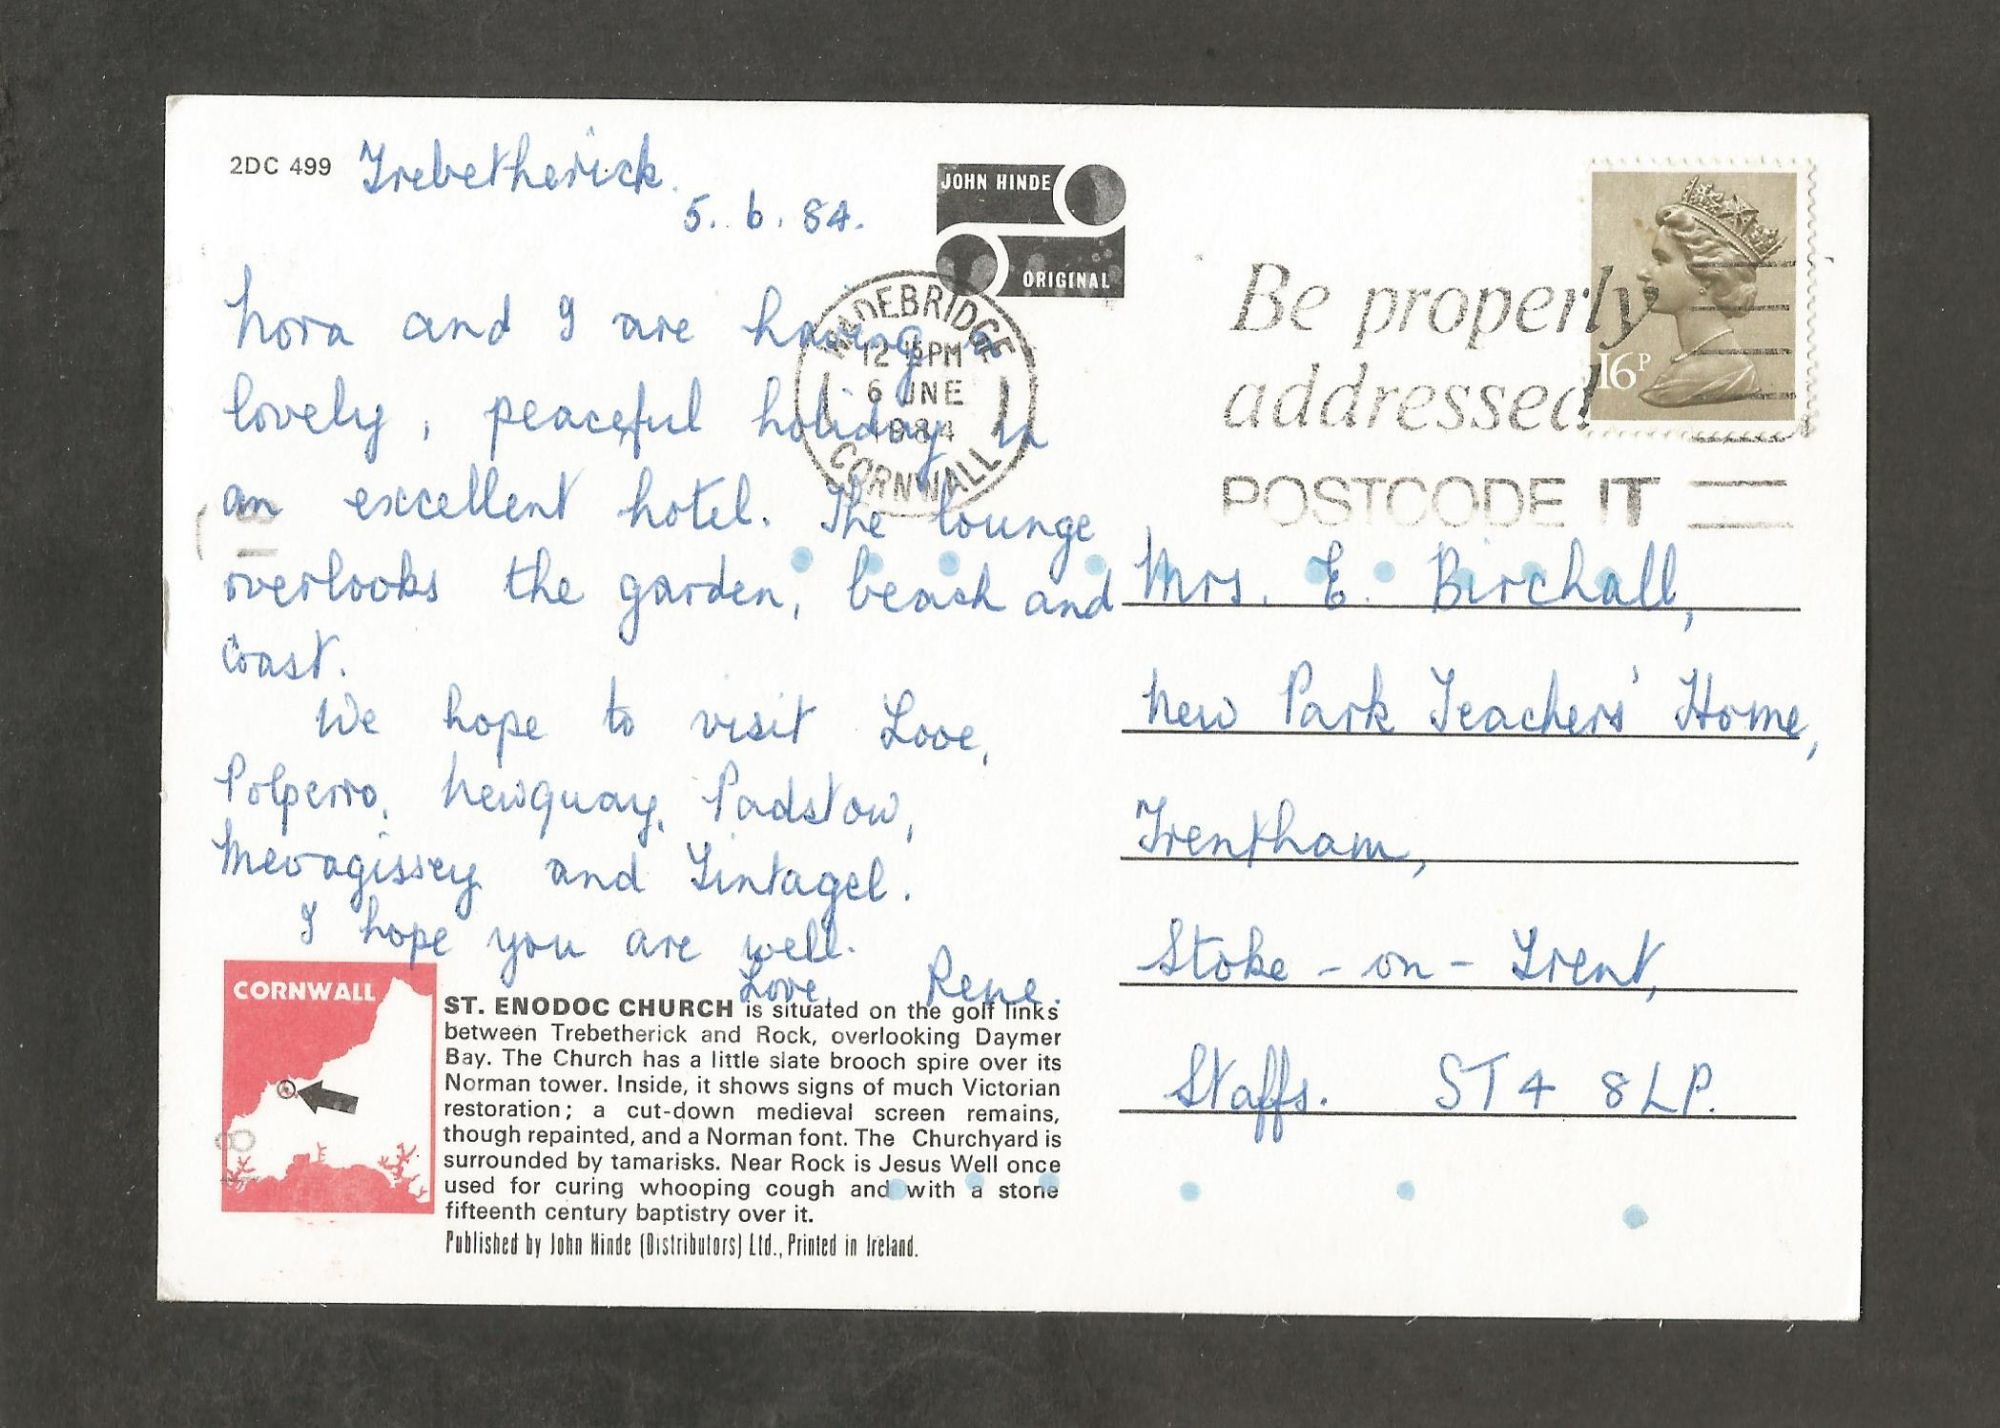 2DC 499
Trebetherick.
5. 6. 84.
Nora and I are having a
lovely, peaceful holiday in
an excellent hotel. The lounge
overlooks the garden, beach and
coast.
We hope to visit Looe,
Polperro, Newquay, Padstow,
Mevagissey and Tintagel.
I hope you are well.
Love, Rene.
JOHN HINDE
ORIGINAL
WADEBRIDGE
12 15PM
6 JNE
1984
CORNWALL
Be properly
addressed
POSTCODE IT
16P
Mrs. E. Birchall,
New Park Teachers' Home,
Trentham,
Stoke-on-Trent,
Staffs. ST4 8LP.
CORNWALL
ST. ENODOC CHURCH is situated on the golf links
between Trebetherick and Rock, overlooking Daymer
Bay. The Church has a little slate brooch spire over its
Norman tower. Inside, it shows signs of much Victorian
restoration; a cut-down medieval screen remains,
though repainted, and a Norman font. The Churchyard is
surrounded by tamarisks. Near Rock is Jesus Well once
used for curing whooping cough and with a stone
fifteenth century baptistry over it.
Published by John Hinde (Distributors) Ltd., Printed in Ireland.